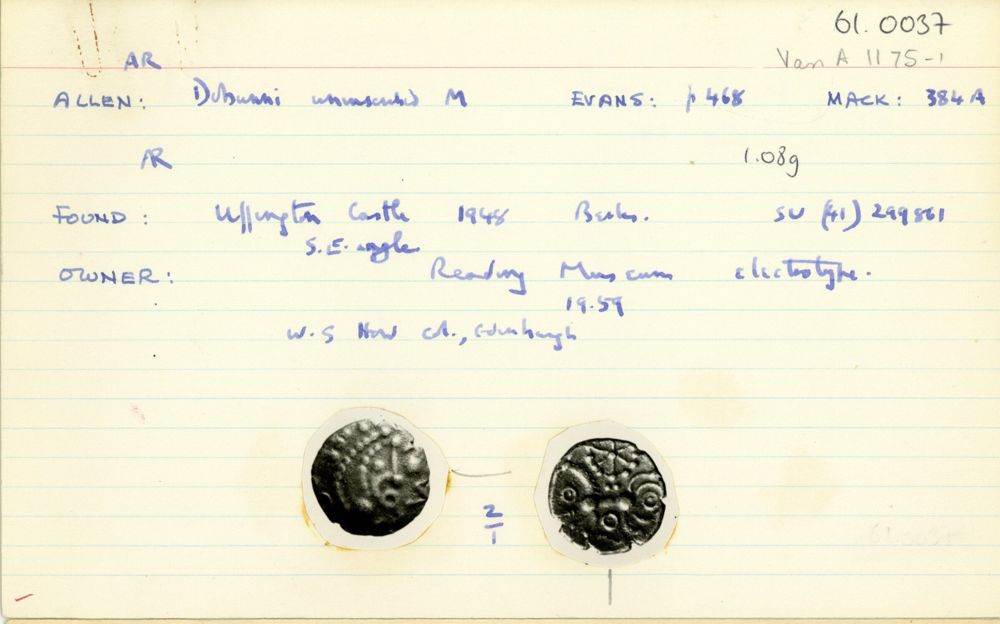 61.0037
Van A 1175-1
AR
ALLEN: Dobunni uninscribed M EVANS: p 468 MACK: 384 A
AR 1.08g
FOUND: Uffington Castle 1948 Berks. SU (41) 299861
S.E. angle
OWNER: Reading Museum electrotype.
19.59
W.S How col., Edinburgh
2/1